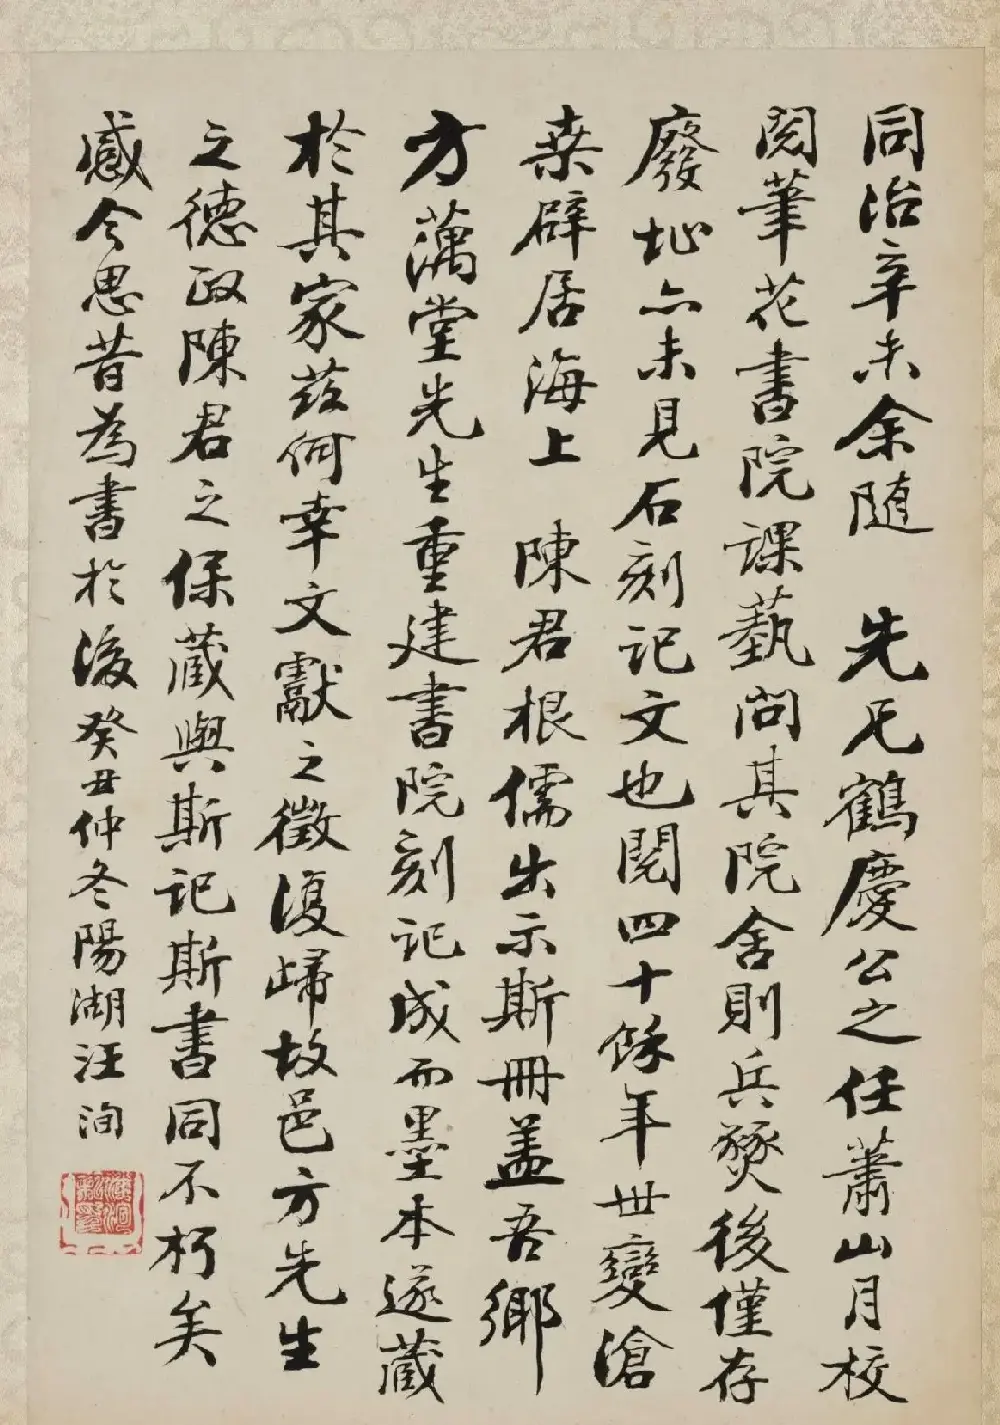 同治辛未余随 先兄鶴慶公之任蕭山月校
閱筆花書院課藝問其院舍則兵燹後僅存
廢址亦未見石刻記文也閱四十餘年世變滄
桑辟居海上 陳君根儒出示斯冊蓋吾鄉
方蕅堂先生重建書院刻記成而墨本遂藏
於其家茲何幸文獻之徵復歸故邑方先生
之德政陳君之保藏與斯記斯書同不朽矣
感今思昔為書於後癸丑仲冬陽湖汪洵